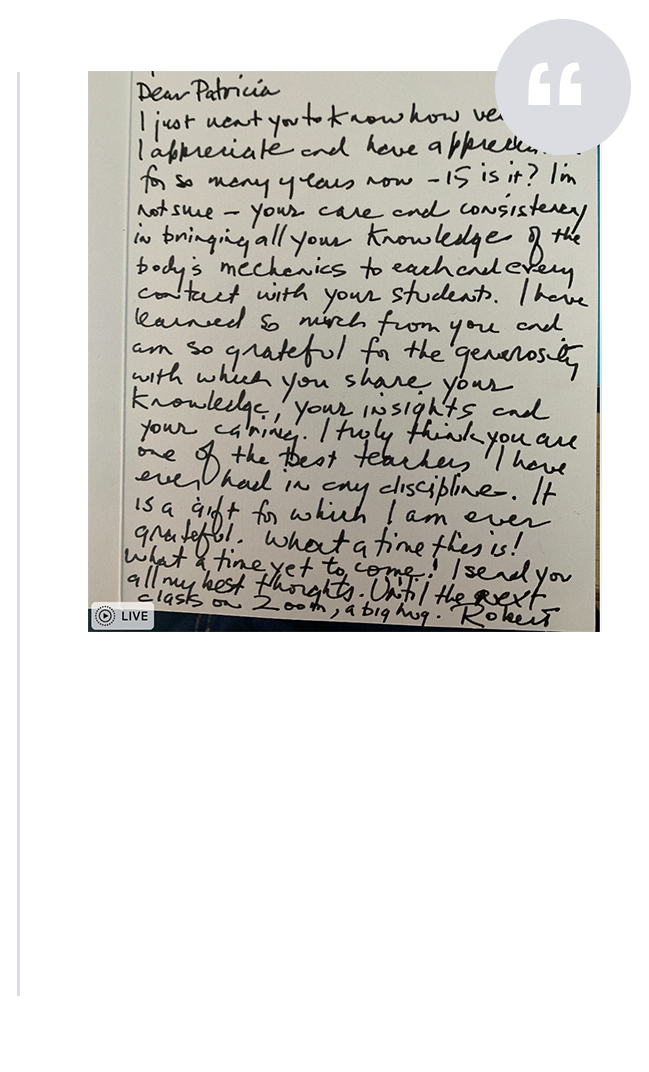 Dear Patricia
I just want you to know how
I appreciate and have
for so many years now – 15 is it? I'm
not sure – your care and consistency
in bringing all your knowledge of the
body's mechanics to each and every
contact with your students. I have
learned so much from you and
am so grateful for the generosity
with which you share your
knowledge, your insights and
your caring. I truly think you are
one of the best teachers I have
ever had in any discipline. It
is a gift for which I am ever
grateful. What a time this is!
What a time yet to come! I send you
all my best thoughts. Until the next
class on Zoom, a big hug. Robert
LIVE